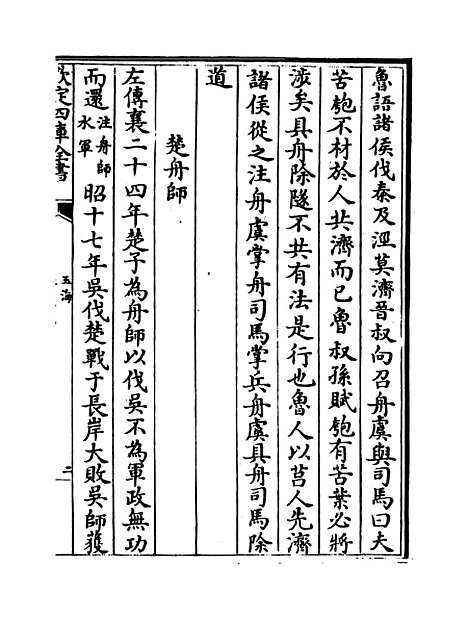 魯語諸侯伐秦及涇莫濟晉叔向召舟虞與司馬曰夫
苦匏不材於人共濟而已魯叔孫賦匏有苦葉必將
涉矣具舟除隧不共有法是行也魯人以莒人先濟
諸侯從之注舟虞掌舟司馬掌兵舟虞具舟司馬除
道
楚舟師
左傳襄二十四年楚子為舟師以伐吳不為軍政無功
而還注舟師水軍昭十七年吳伐楚戰于長岸大敗吳師獲
欽定四庫全書
玉海
二